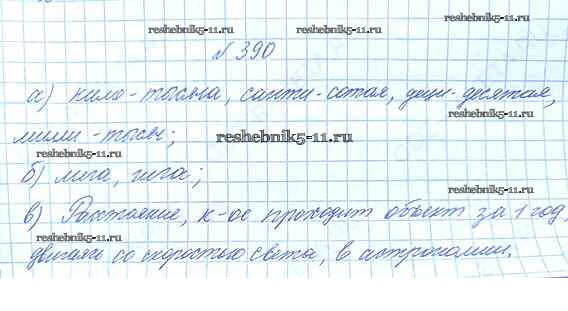 reshebnik5-11.ru
reshebnik5-11.ru
№ 390
а) кило-тысяча, санти-сотая, деци-десятая,
reshebnik5-11.ru
милли-тысяч;
reshebnik5-11.ru
reshebnik5-11.ru
б) мега, гига;
reshebnik5-11.ru
в) Расстояние, к-ое проходит объект за 1 год,
reshebnik5-11.ru
reshebnik5-11.ru
двигаясь со скоростью света, в астрономии.